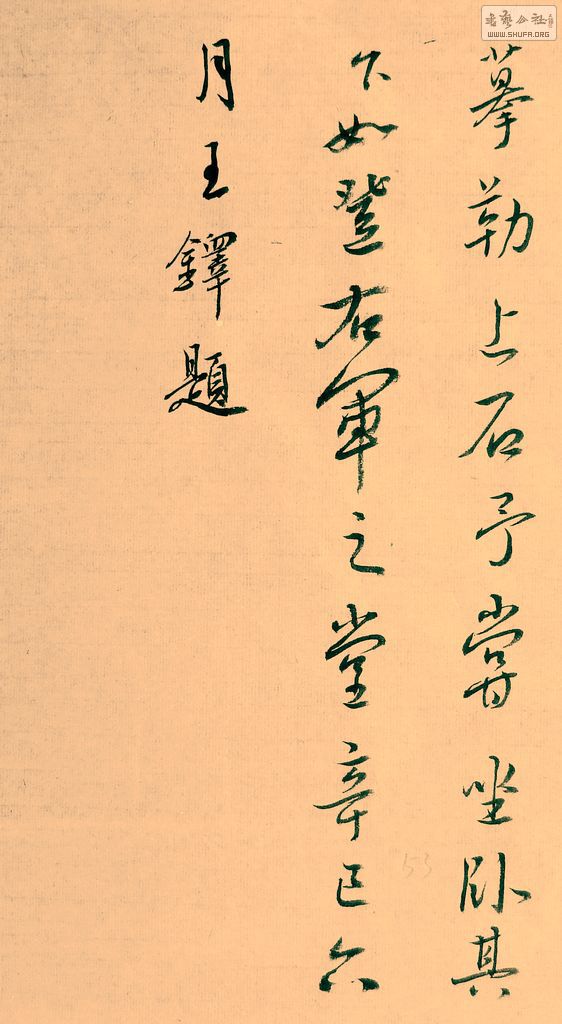 摹勒上石予嘗坐卧其
下如登右軍之堂辛巳六
月王鐸題
书艺公社
WWW.SHUFA.ORG
53